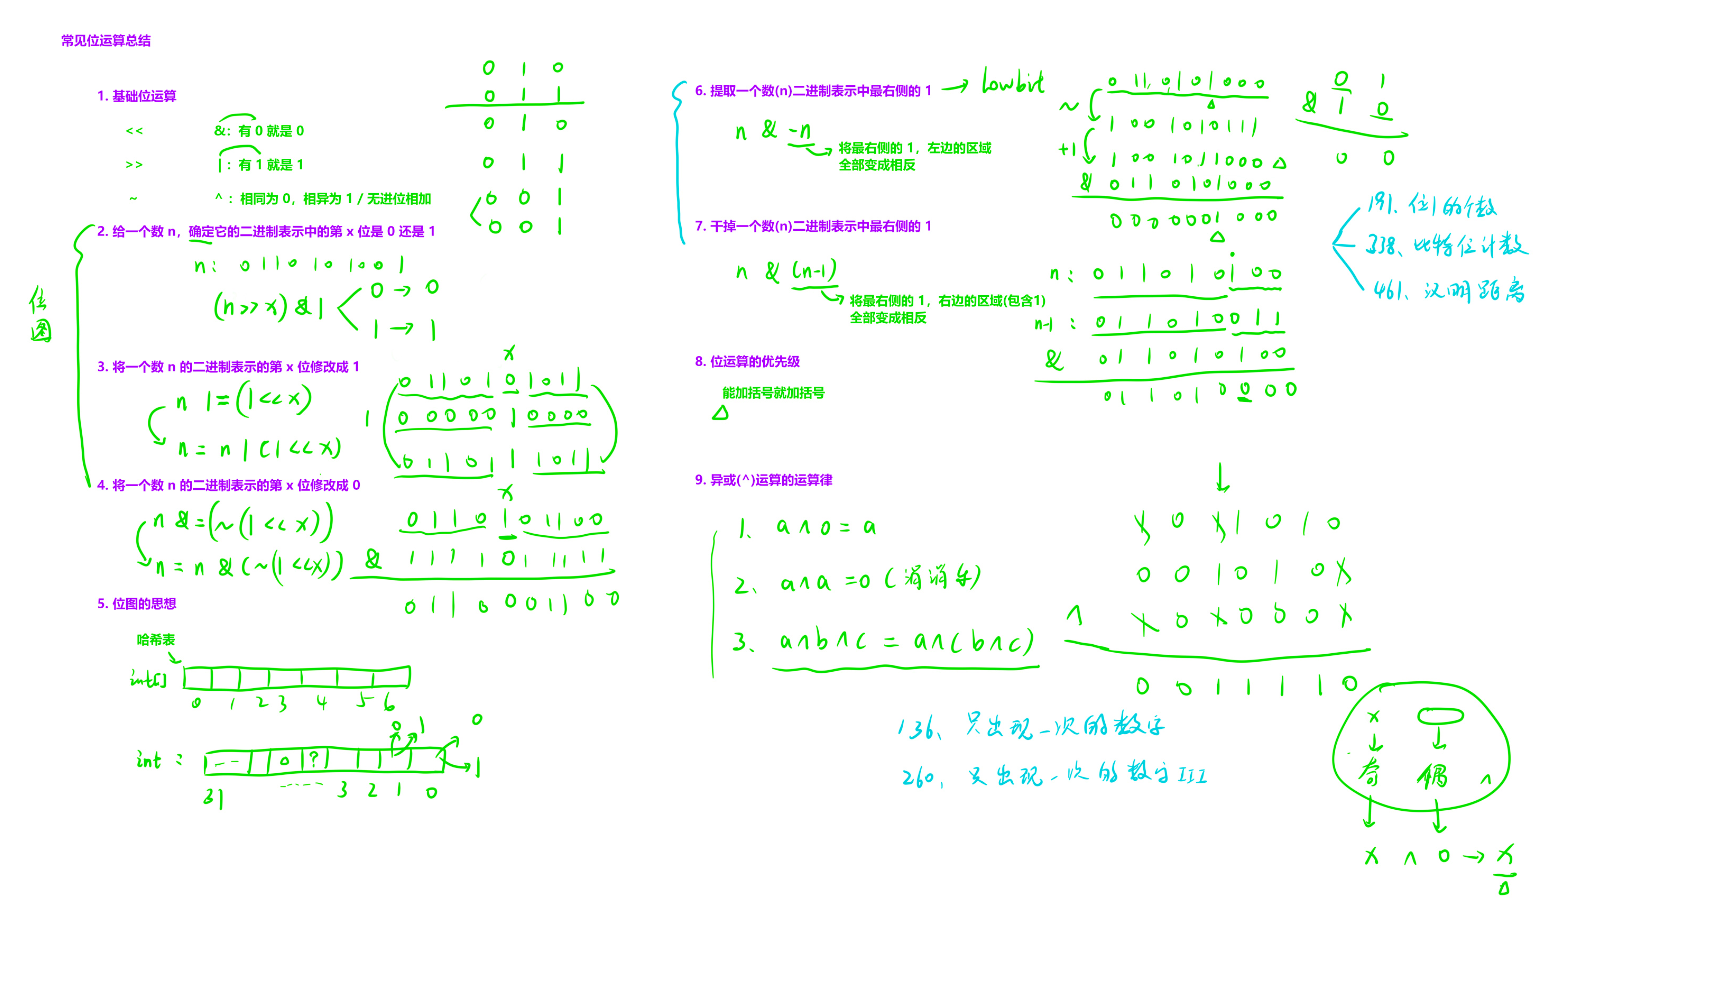 常见位运算总结
1. 基础位运算
<< &：有 0 就是 0
>> |：有 1 就是 1
~ ^：相同为 0，相异为 1 / 无进位相加
0 1 0
0 1 1
0 1 0
0 1 1
0 0 1
0 0 1
2. 给一个数 n，确定它的二进制表示中的第 x 位是 0 还是 1
n: 0 1 1 0 1 0 1 0 0 1
(n >> x) & 1
0 → 0
1 → 1
位图
3. 将一个数 n 的二进制表示的第 x 位修改成 1
n |= (1 << x)
n = n | (1 << x)
x
0 1 1 0 1 0 1 0 1 1
| 0 0 0 0 0 1 0 0 0 0
0 1 1 0 1 1 1 0 1 1
4. 将一个数 n 的二进制表示的第 x 位修改成 0
n &= (~(1 << x))
n = n & (~(1 << x))
x
0 1 1 0 1 0 1 1 0 0
& 1 1 1 1 0 1 1 1 1 1
0 1 1 0 0 0 1 1 0 0
5. 位图的思想
哈希表
int[]
0 1 2 3 4 5 6
int :
0 1 0
0 ? 1
31 3 2 1 0
6. 提取一个数(n)二进制表示中最右侧的 1 → lowbit
n & -n
将最右侧的 1，左边的区域
全部变成相反
0 1 1 0 1 0 1 0 0 0
~ 1 0 0 1 0 1 0 1 1 1
+1 1 0 0 1 0 1 1 0 0 0
& 0 1 1 0 1 0 1 0 0 0
0 0 0 0 0 0 1 0 0 0
0 1
& 1 0
0 0
191、位1的个数
338、比特位计数
461、汉明距离
7. 干掉一个数(n)二进制表示中最右侧的 1
n & (n-1)
将最右侧的 1，右边的区域(包含1)
全部变成相反
n: 0 1 1 0 1 0 1 0 0
n-1 : 0 1 1 0 1 0 0 1 1
& 0 1 1 0 1 0 1 0 0
0 1 1 0 1 0 0 0 0
8. 位运算的优先级
能加括号就加括号
9. 异或(^)运算的运算律
1、 a ^ 0 = a
2、 a ^ a = 0 (消消乐)
3、 a ^ b ^ c = a ^ (b ^ c)
0 1 0 1 0
0 0 1 0 1 0
^ 0 0 0 0
0 0 1 1 1 1 0
136、只出现一次的数字
260、只出现一次的数字 III
x
奇 偶 ^
x ^ 0 → x